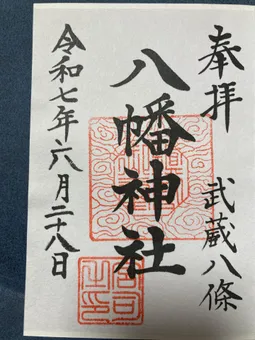 奉拝
武蔵八條
八幡神社
令和七年六月二十八日